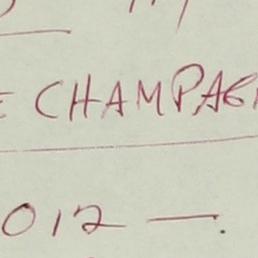 E CHAMPAG
012 —.